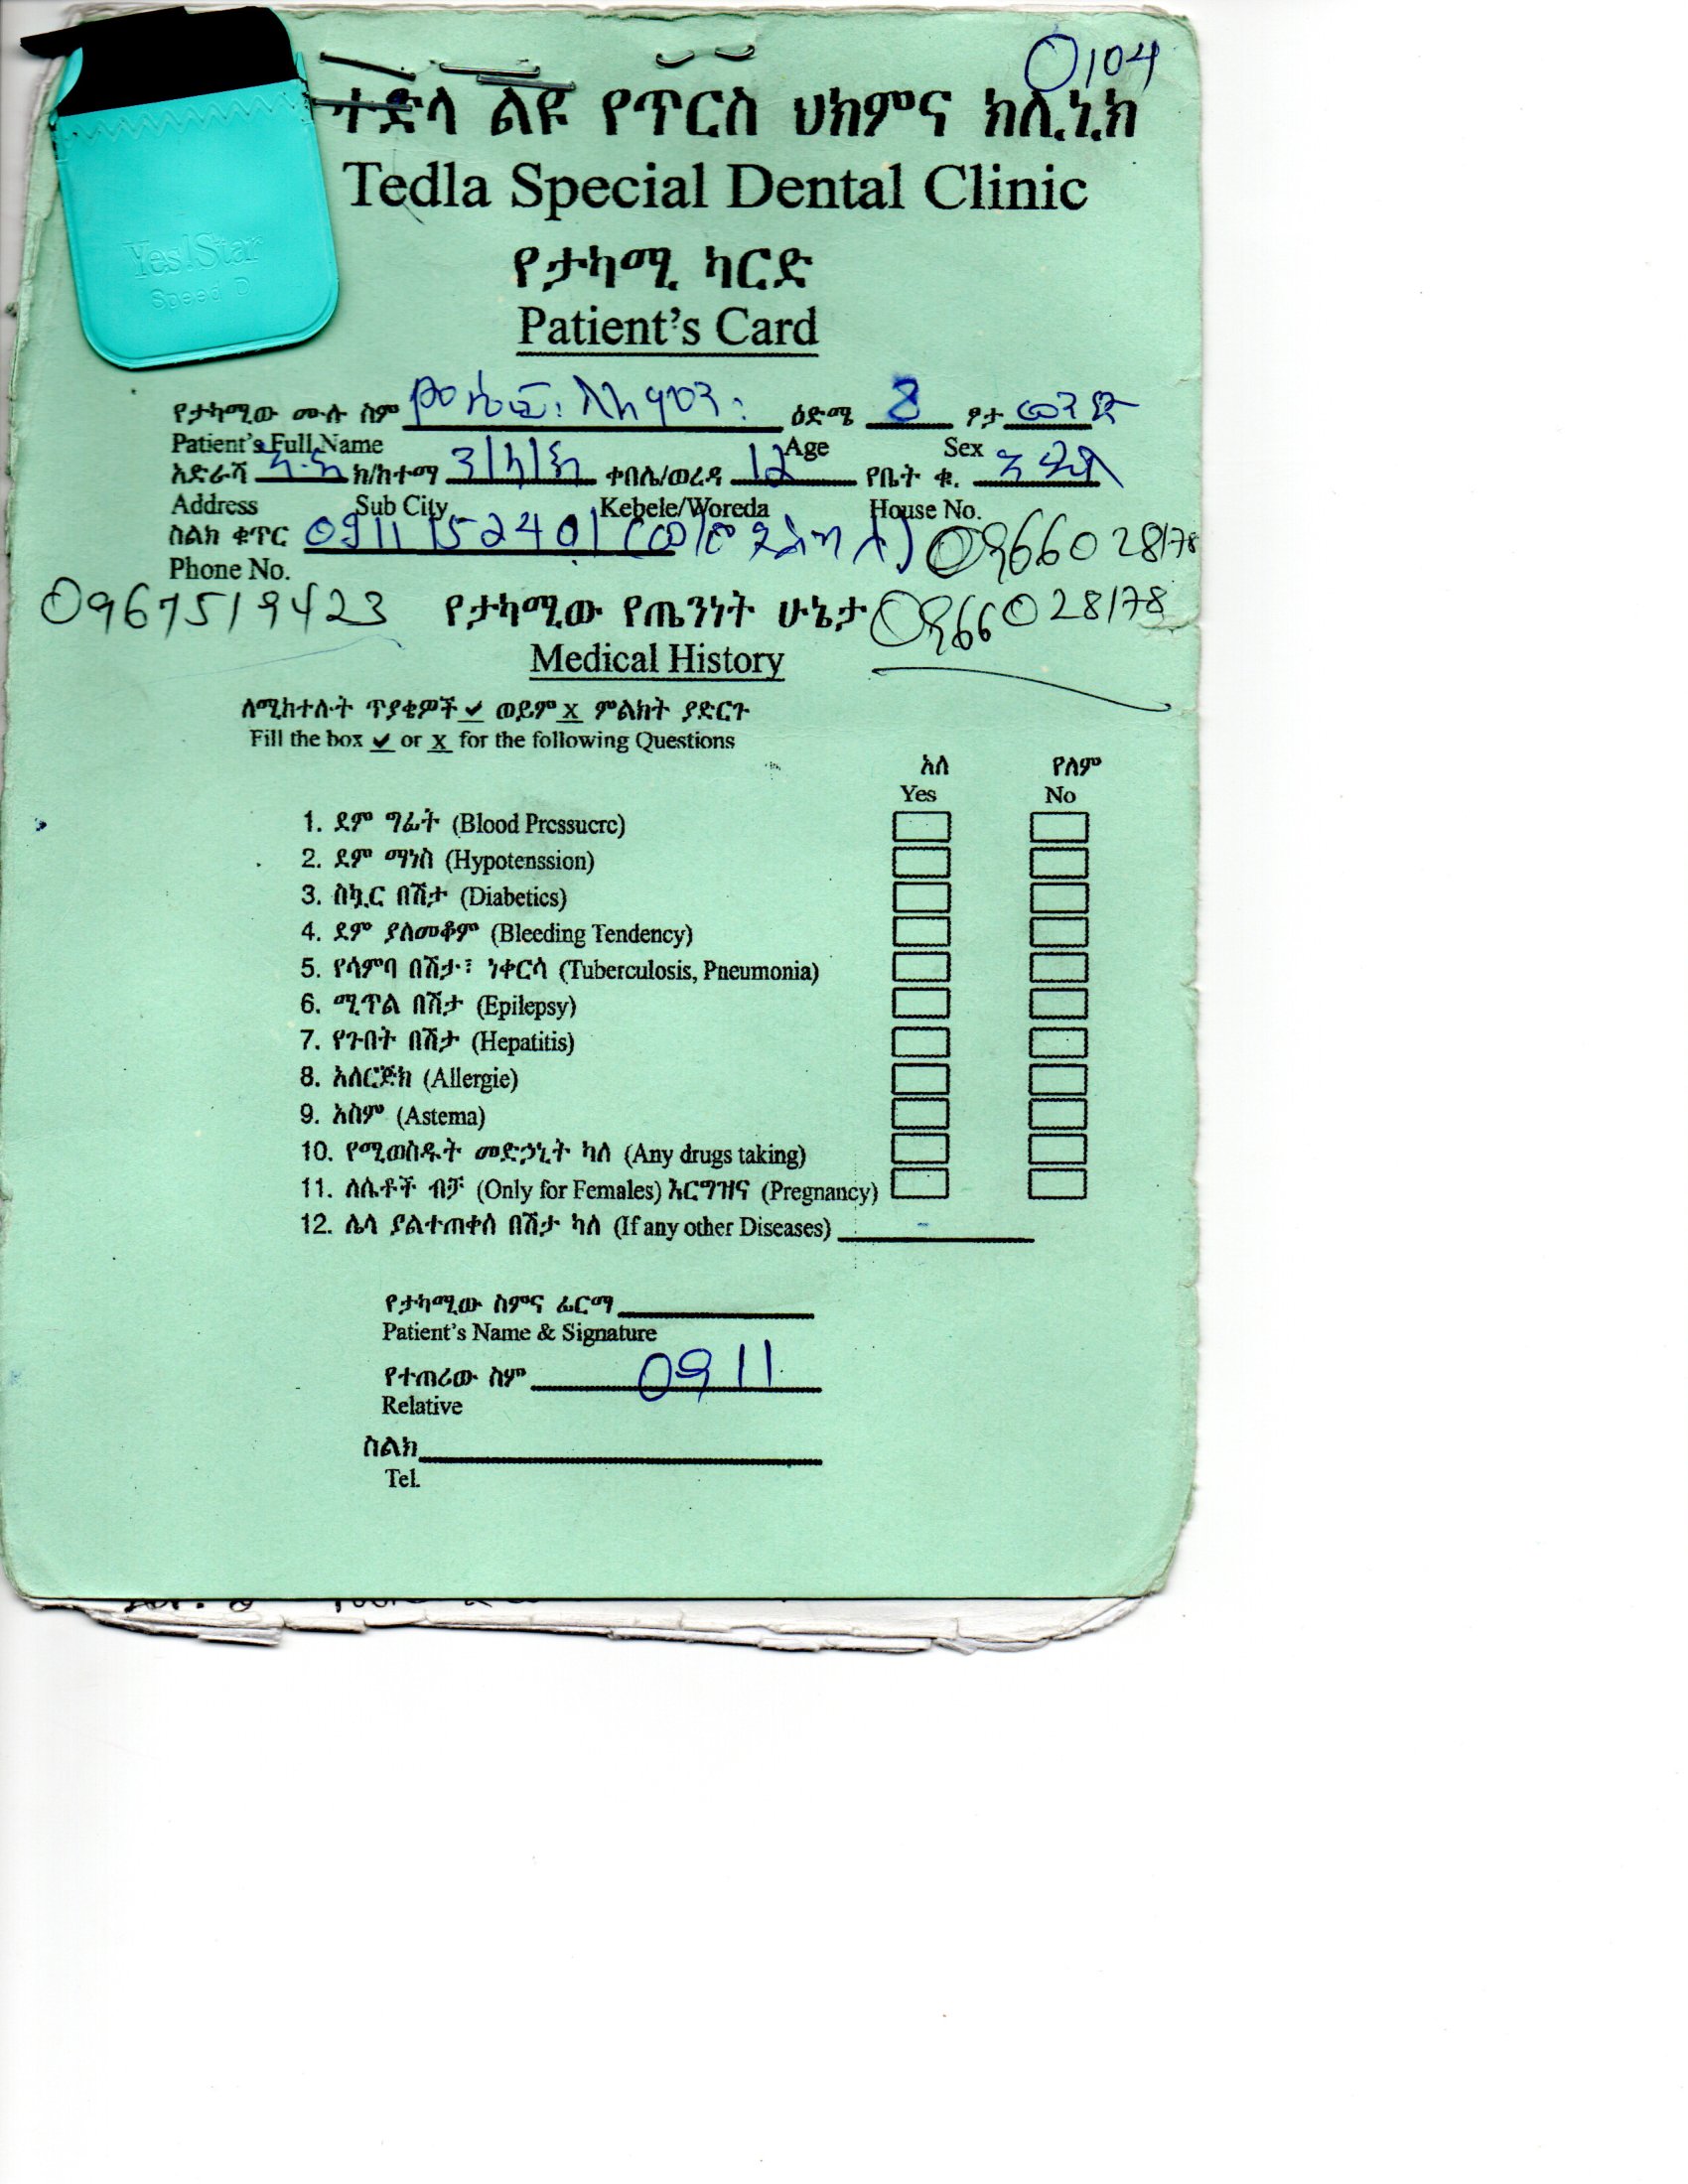 0104
ተድላ ልዩ የጥርስ ህክምና ክሊኒክ
Tedla Special Dental Clinic
Yes!Star
Speed D
የታካሚ ካርድ
Patient's Card
የታካሚው ሙሉ ስም ዕድሜ 8 ፆታ ወንድ
Patient's Full Name Age Sex
አድራሻ አ.አ ክ/ከተማ ን/ላ/ክ ቀበሌ/ወረዳ 12 የቤት ቁ.
Address Sub City Kebele/Woreda House No.
ስልክ ቁጥር 0911152401 0966028178
Phone No.
0967519423 የታካሚው የጤንነት ሁኔታ 0966028178
Medical History
ለሚከተሉት ጥያቄዎች ✔ ወይም x ምልክት ያድርጉ
Fill the box ✔ or x for the following Questions
አለ የለም
Yes No
1. ደም ግፊት (Blood Pressuere)
2. ደም ማነስ (Hypotenssion)
3. ስኳር በሽታ (Diabetics)
4. ደም ያለመቆም (Bleeding Tendency)
5. የሳምባ በሽታ፣ ነቀርሳ (Tuberculosis, Pneumonia)
6. ሚጥል በሽታ (Epilepsy)
7. የጉበት በሽታ (Hepatitis)
8. አለርጅክ (Allergie)
9. አስም (Astema)
10. የሚወስዱት መድኃኒት ካለ (Any drugs taking)
11. ለሴቶች ብቻ (Only for Females) እርግዝና (Pregnancy)
12. ሌላ ያልተጠቀሰ በሽታ ካለ (If any other Diseases)
የታካሚው ስምና ፊርማ
Patient's Name & Signature
የተጠሪው ስም 0911
Relative
ስልክ
Tel.